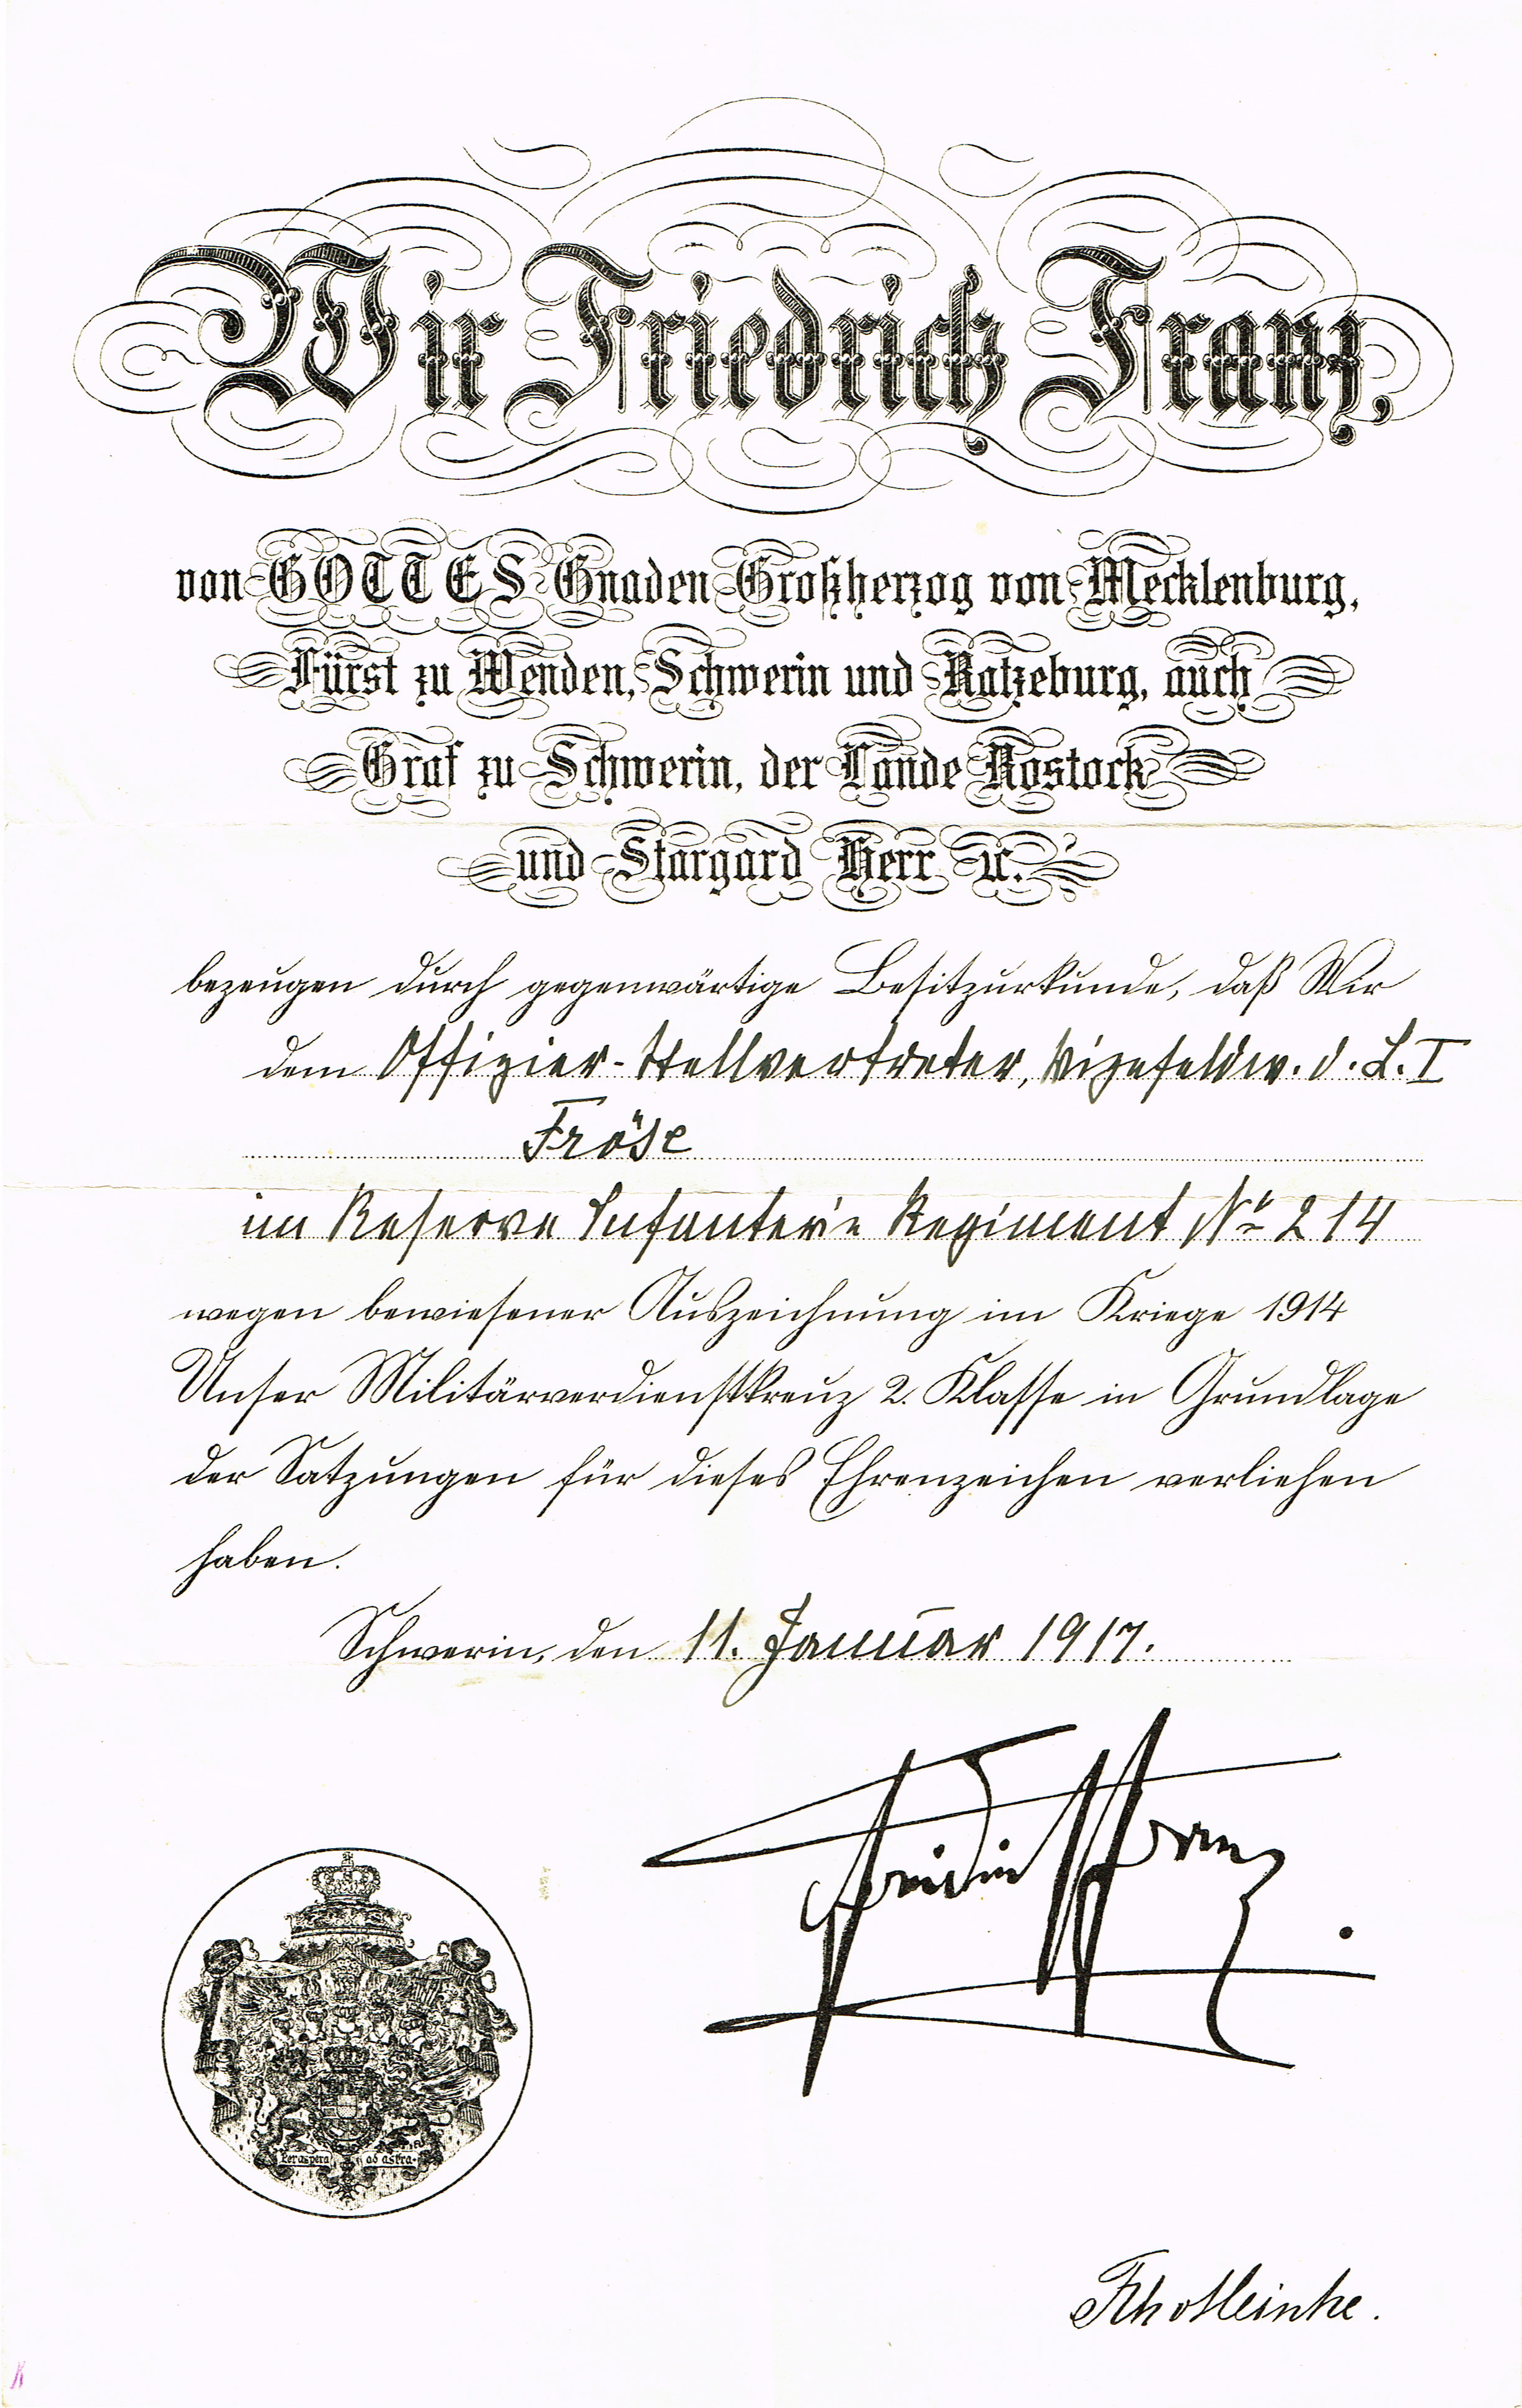 Wir Friedrich Franz,
von GOTTES Gnaden Großherzog von Mecklenburg,
Fürst zu Wenden, Schwerin und Ratzeburg, auch
Graf zu Schwerin, der Lande Rostock
und Stargard Herr ꝛc.
bezeugen durch gegenwärtige Besitzurkunde, daß Wir
dem Offizier-Stellvertreter, Vizefeldw. d. L. I
Fröse
im Reserve Infanterie Regiment No 214
wegen bewiesener Auszeichnung im Kriege 1914
Unser Militärverdienstkreuz 2. Klasse in Grundlage
der Satzungen für dieses Ehrenzeichen verliehen
haben.
Schwerin, den 11. Januar 1917.
Friedrich Franz
Per aspera ad astra